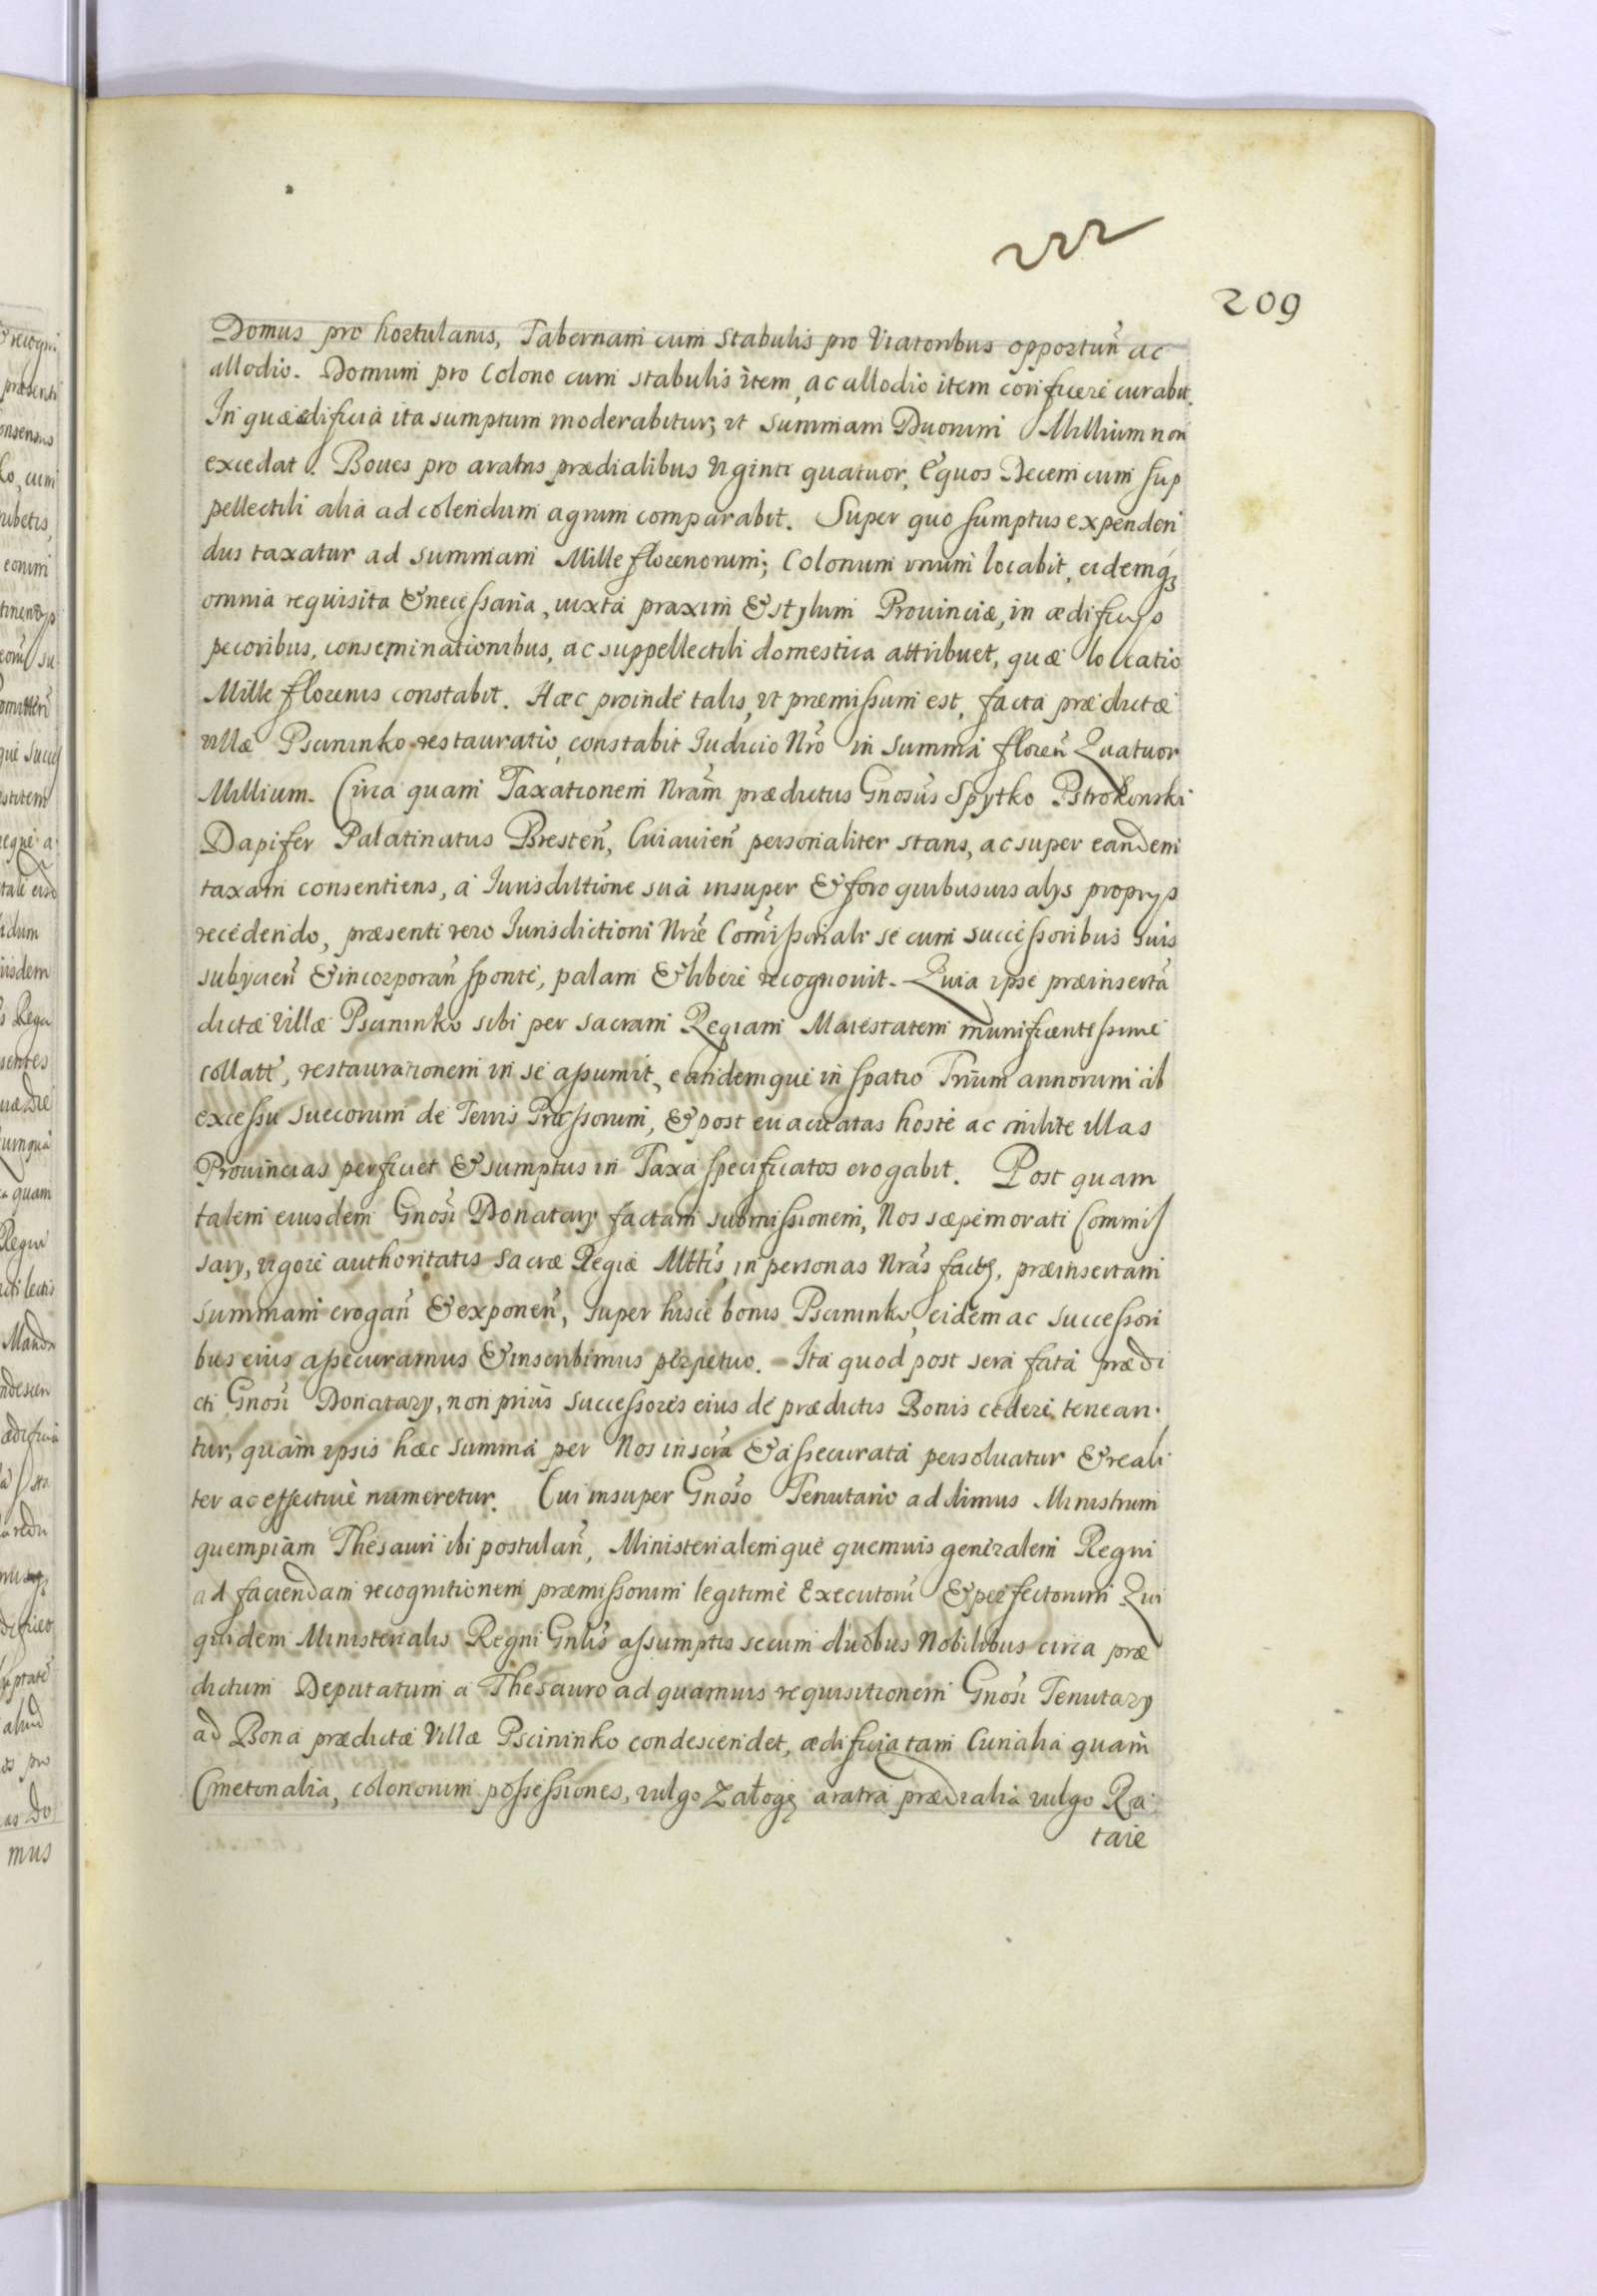 209
Domus pro hortulanis, Tabernam cum Stabulis pro Viatoribus opportuñ ac
allodio. Domum pro Colono cum stabulis item, ac allodio item conficere curabit.
In quæ ædificia ita sumptum moderabitur; vt summam Duorum Millium non
excedat. Boues pro aratris prædialibus Viginti quatuor, Equos Decem cum sup
pellectili alia ad colendum agrum comparabit. Super quo sumptus expenden
dus taxatur ad summam Mille florenorum; Colonum vnum locabit, eidemq́ꝫ
omnia requisita & necessaria, iuxta praxim & stylum Prouinciæ, in ædificijs
pecoribus, conseminationibus, ac suppellectili domestica attribuet, quæ locatio
Mille florenis constabit. Hæc proinde talis, vt præmissum est, facta prædictæ
villæ Pscininko restauratio, constabit Iudicio Nr̃o in summa floreñ Quatuor
Millium. Circa quam Taxationem Nrãm prædictus Gnosũs Spytko Pstrokonski
Dapifer Palatinatus Bresteñ, Cuiauieñ personaliter stans, ac super eandem
taxam consentiens, a Iurisdictione sua insuper & foro quibusuis alijs proprijs
recedendo, præsenti vero Iurisdictioni Nrẽ Com̃issoriali se cum successoribus suis
subijcieñ & incorporañ sponte, palam & libere recognouit. Quia ipse præinsertã
dictæ Villæ Pscininko sibi per sacram Regiam Maiestatem munificentissime
collatẽ, restaurationem in se assumit, eandemque in spatio Trium annorum ab
excessu Suecorum de Terris Prussorum, & post euacuatas hoste ac milite illas
Prouincias perficiet & sumptus in Taxa specificatos erogabit. Post quam
talem eiusdem Gnosĩ Donatarij factam submissionem, Nos sæpememorati Commis
sarij, vigore authoritatis Sacræ Regiæ Mttĩs, in personas Nrãs factę, præinsertam
summam erogañ & exponeñ, super hisce bonis Pscininko, eidem ac successori
bus eius assecuramus & inscribimus perpetuo. Ita quod post sera fata prædi
cti Gnosĩ Donatarij, non priùs successores eius de prædictis Bonis cedere tenean.
tur, quàm ipsis hæc summa per Nos inscrã & assecurata persoluatur & reali
ter ac effectiuè numeretur. Cui insuper Gnosõ Tenutario addimus Ministrum
quempiàm Thesauri ibi postulañ, Ministerialemque quemuis generalem Regni
ad faciendam recognitionem præmissorum legitimè Executorũ & perfectorum Qui
quidem Ministerialis Regni Gnlĩs assumptis secum duobus Nobilibus circa præ
dictum Deputatum a Thesauro ad quamuis requisitionem Gnosĩ Tenutarij
ad Bona prædictæ Villæ Pscininko condescendet, ædificia tam Curialia quàm
Cmetonalia, colonorum possessiones, vulgo Załogę aratra prædialia vulgo Ra
taie